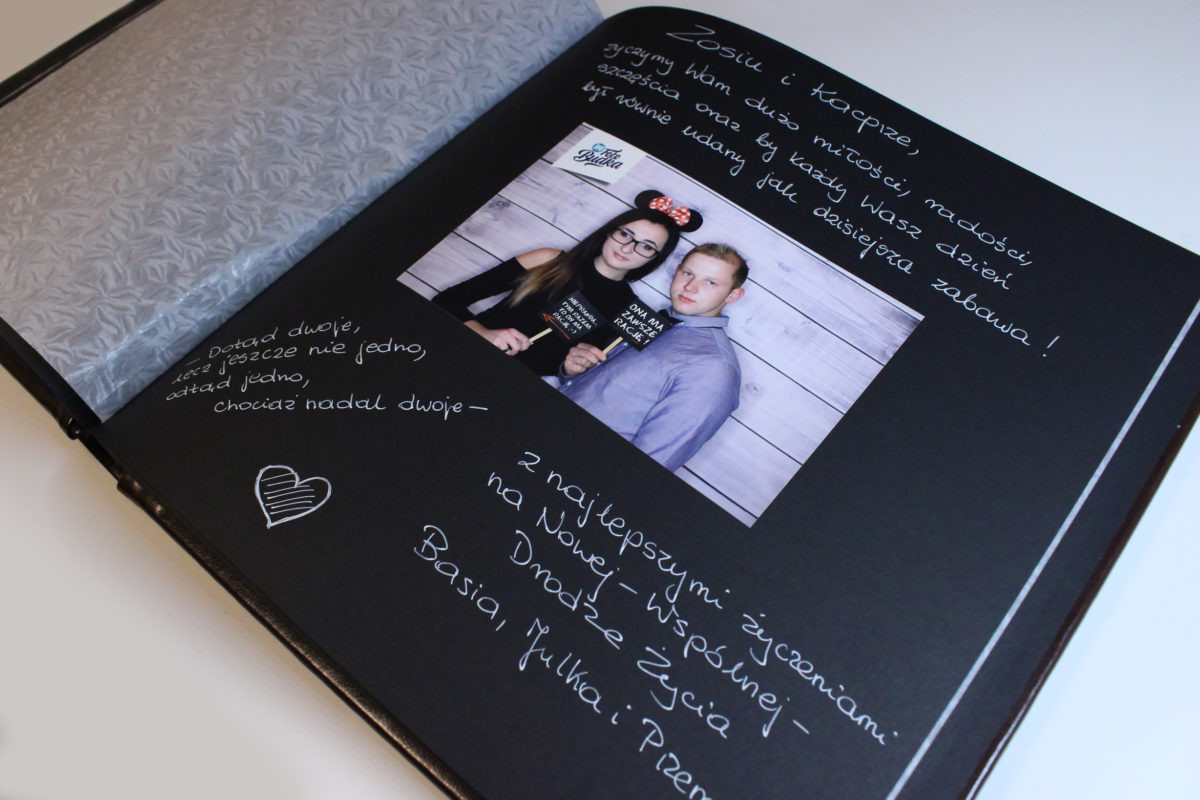 Zosiu i Kacprze,
życzymy Wam dużo miłości, radości,
szczęścia oraz by każdy Wasz dzień
był równie udany jak dzisiejsza zabawa!
Foto
Budka
NIEPRAWDA
TYM RAZEM
TO ON MA
RACJĘ :)
ONA MA
ZAWSZE
RACJĘ!
– Dotąd dwoje,
lecz jeszcze nie jedno,
odtąd jedno,
chociaż nadal dwoje –
z najlepszymi życzeniami
na Nowej – Wspólnej –
Drodze Życia
Basia, Julka i Przem